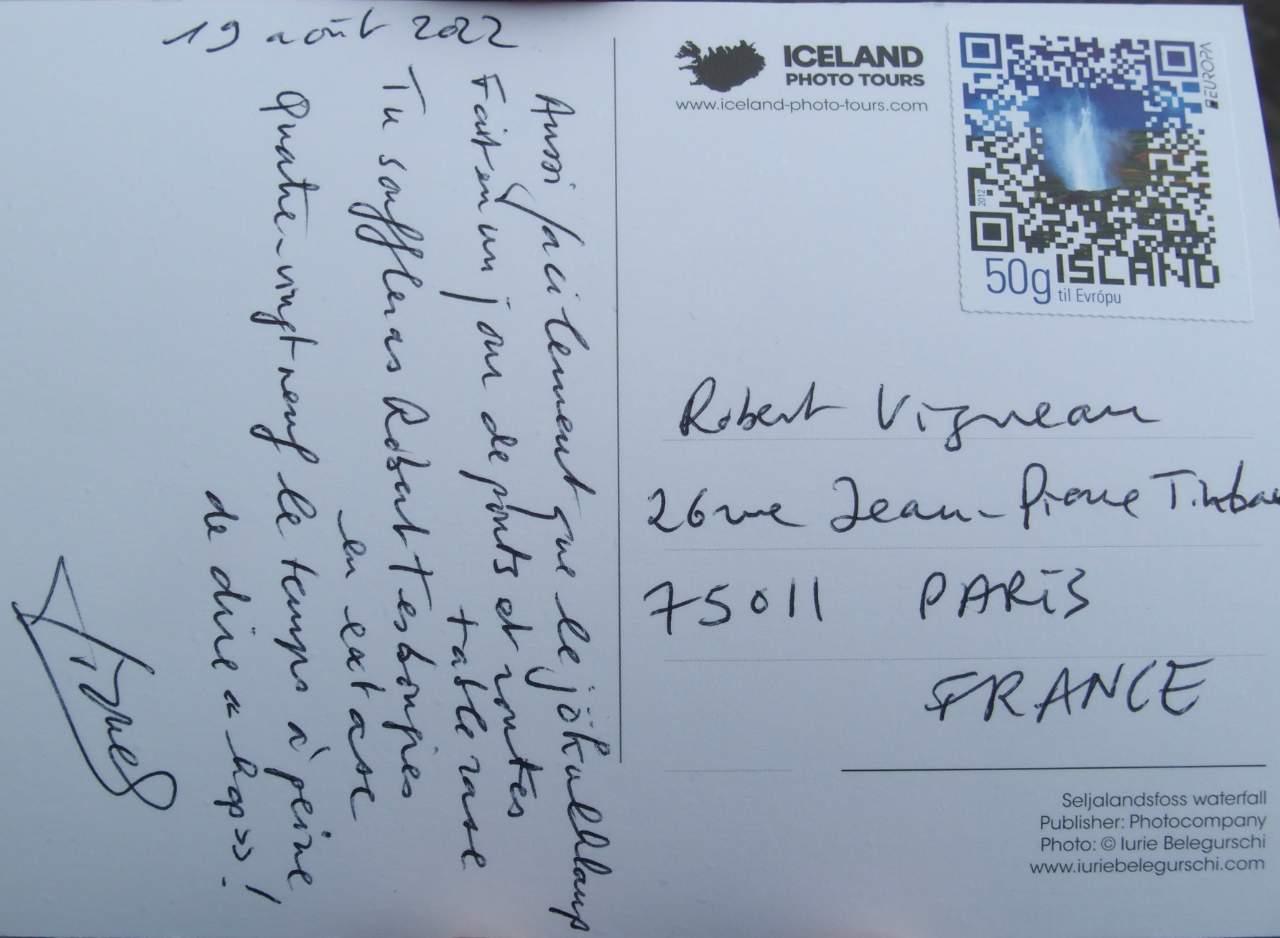 19 août 2022
Aussi facilement que le jökulhlaup
Fait en un jour de ponts et routes
table rase
Tu souffleras Robert tes bougies
en extase
Quatre-vingt neuf le temps à peine
de dire « hop » !
ICELAND
PHOTO TOURS
www.iceland-photo-tours.com
EUROPA
2012
50g ISLAND
til Evrópu
Robert Vigneau
26 rue Jean-Pierre Timba
75011 PARIS
FRANCE
Seljalandsfoss waterfall
Publisher: Photocompany
Photo: © Iurie Belegurschi
www.iuriebelegurschi.com